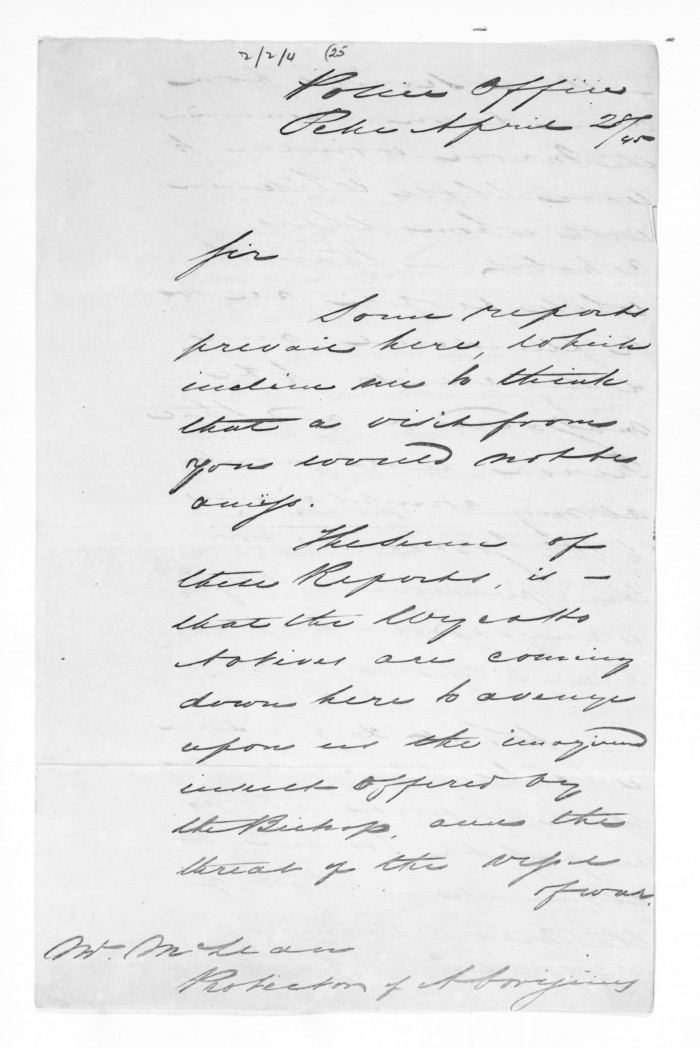 2/2/4 (25
Police Office
Peke April 28/45
Sir
Some reports
prevail here, which
incline me to think
that a visit from
you would not be
amiss.
The sum of
these Reports, is -
that the Wycatto
Natives are coming
down here to avenge
upon us the imagined
insult offered by
the Bishop, and the
threat of the vessel
of war.
Mr. McLean
Protector of Aborigines